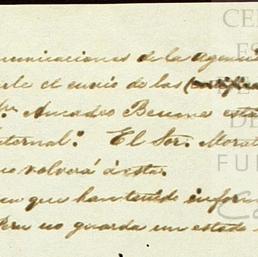 municaciones de la agencia
el envio de las
Amadeo Benine está
aternal". El Sor. Morat
no volverá á esta.
en que han tenido inform
Peru no guarda un estado
CE
ES
DE
FU